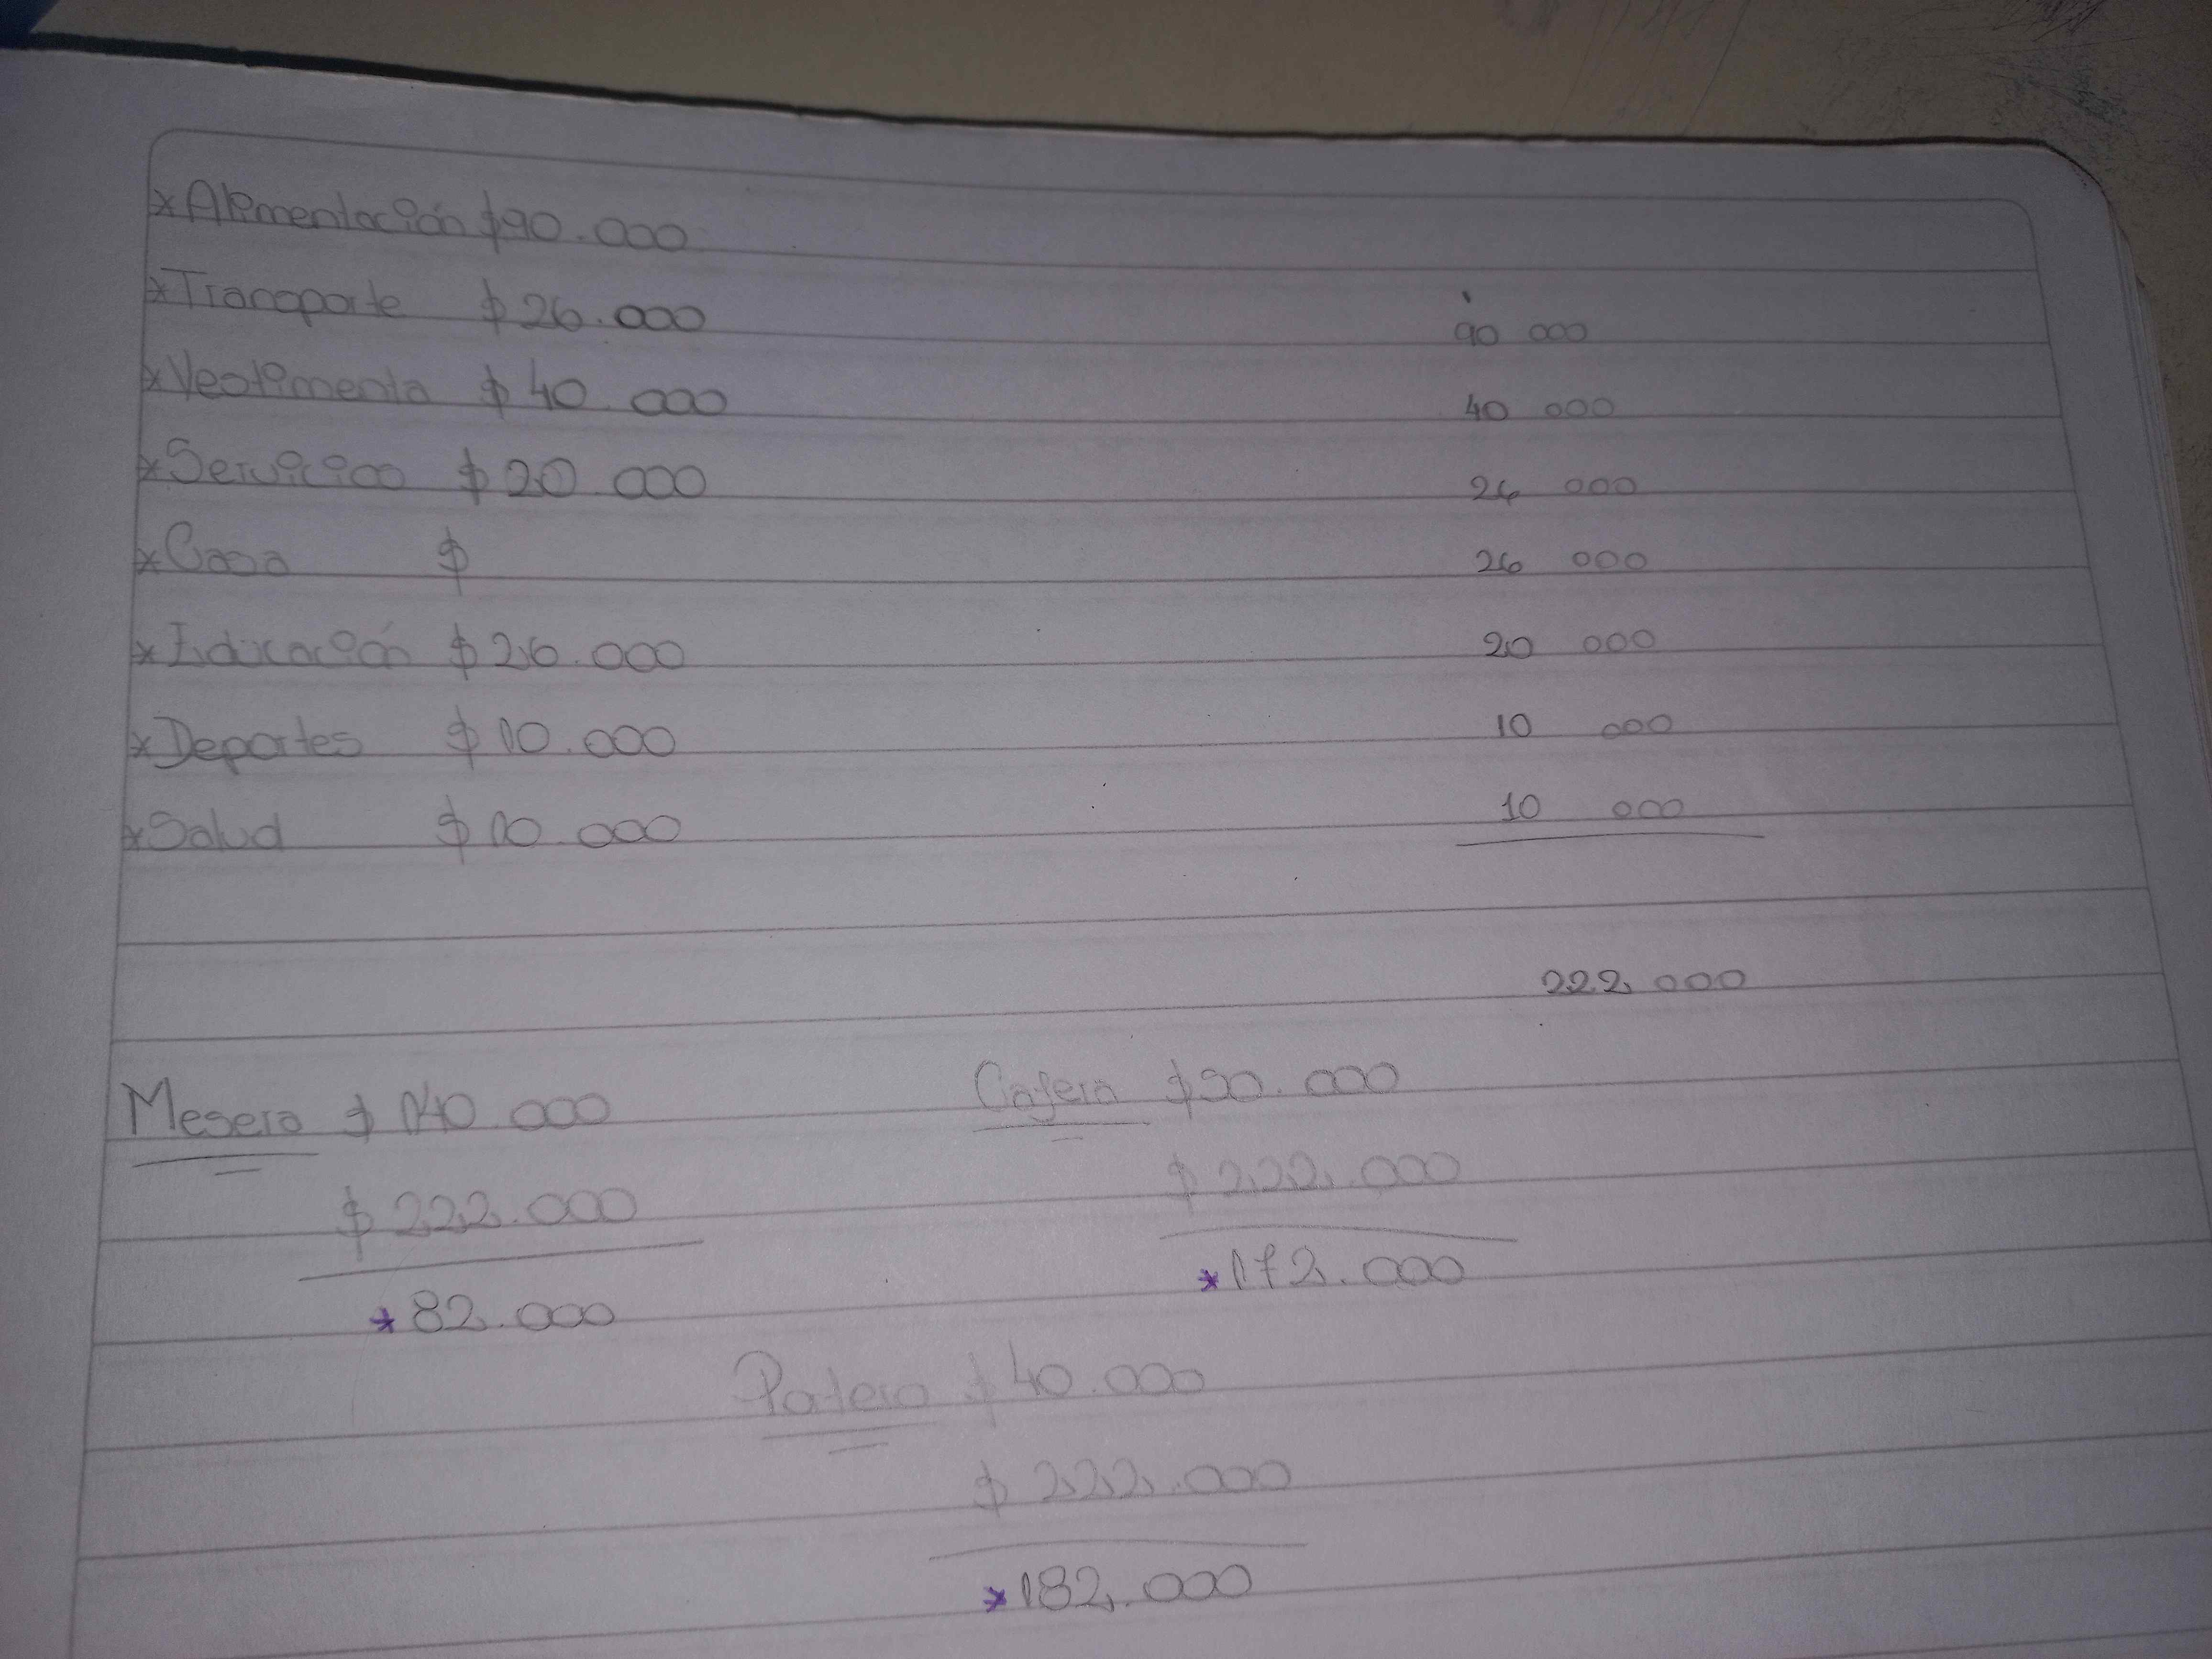 * Alimentación $90.000
* Transporte $ 26.000
* Vestimenta $ 40.000
* Servicios $ 20.000
* Casa $
* Educación $ 26.000
* Deportes $ 10.000
* Salud $ 10.000
90 000
40 000
26 000
26 000
20 000
10 000
10 000
222.000
Mesero $ 140.000
$ 222.000
* 82.000
Cajero $50.000
$ 222.000
* 172.000
Patero $ 40.000
$ 222.000
* 182.000